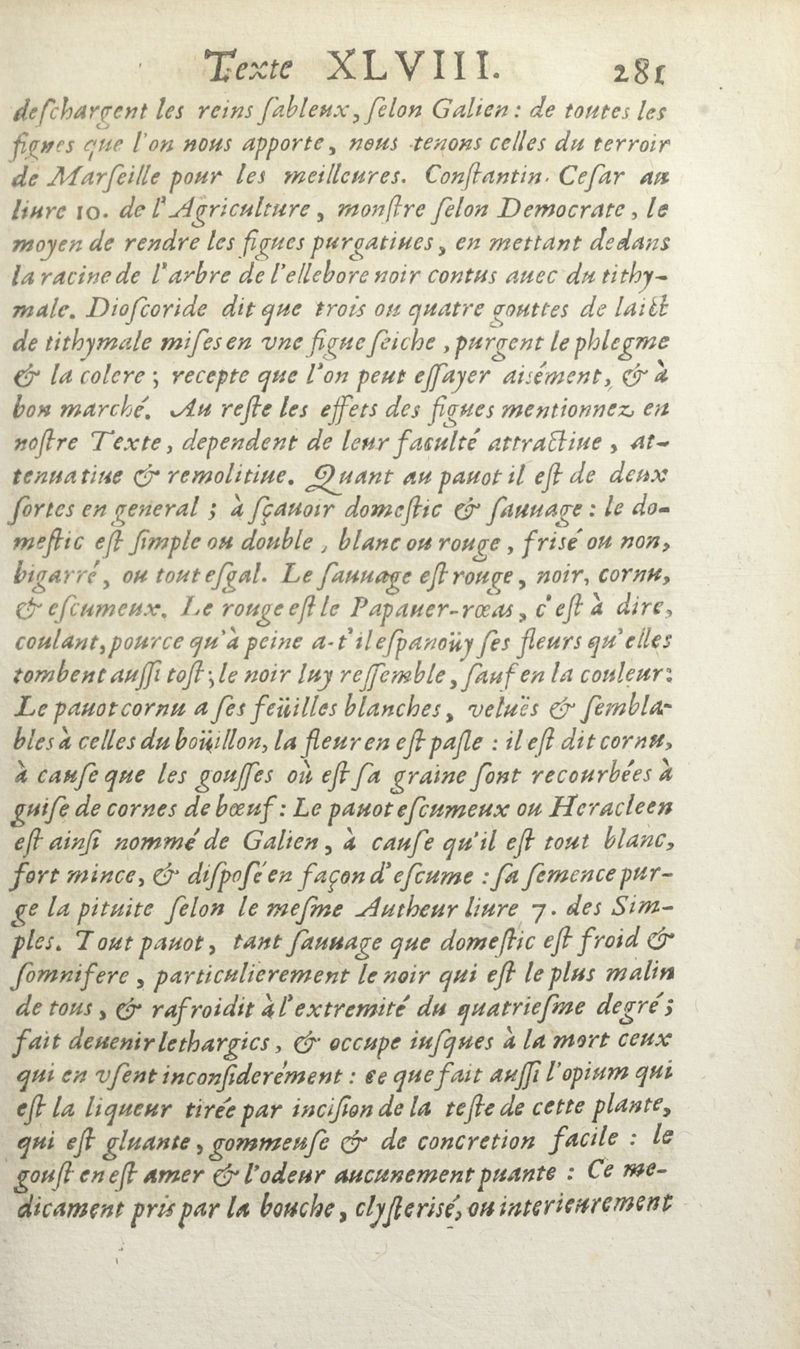 Texte XLVIII. 281
deſchargent les reins ſableux, ſelon Galien : de toutes les
figues que l'on nous apporte, nous tenons celles du terroir
de Marſeille pour les meilleures. Conſtantin Ceſar au
liure 10. de l'Agriculture, monſtre ſelon Democrate, le
moyen de rendre les figues purgatiues, en mettant dedans
la racine de l'arbre de l'ellebore noir contus auec du tithy-
male. Dioſcoride dit que trois ou quatre gouttes de laict
de tithymale miſes en vne figue ſeiche, purgent le phlegme
& la colere ; recepte que l'on peut eſſayer aisément, & à
bon marché. Au reſte les effets des figues mentionnez en
noſtre Texte, dependent de leur faculté attractiue, at-
tenuatiue & remolitiue. Quant au pauot il eſt de deux
ſortes en general ; à ſçauoir domeſtic & ſauuage : le do-
meſtic eſt ſimple ou double, blanc ou rouge, frisé ou non,
bigarré, ou tout eſgal. Le ſauuage eſt rouge, noir, cornu,
& eſcumeux. Le rouge eſt le Papauer-rœas, c'eſt à dire,
coulant, pource qu'à peine a-t'il eſpanoüy ſes fleurs qu'elles
tombent auſſi toſt ; le noir luy reſſemble, ſauf en la couleur :
Le pauot cornu a ſes feüilles blanches, veluës & ſembla-
bles à celles du boüillon, la fleur en eſt paſle : il eſt dit cornu,
à cauſe que les gouſſes où eſt ſa graine ſont recourbées à
guiſe de cornes de bœuf : Le pauot eſcumeux ou Heracleen
eſt ainſi nommé de Galien, à cauſe qu'il eſt tout blanc,
fort mince, & diſposé en façon d'eſcume : ſa ſemence pur-
ge la pituite ſelon le meſme Autheur liure 7. des Sim-
ples. Tout pauot, tant ſauuage que domeſtic eſt froid &
ſomnifere, particulierement le noir qui eſt le plus malin
de tous, & rafroidit à l'extremité du quatrieſme degré ;
fait deuenir lethargics, & occupe iuſques à la mort ceux
qui en vſent inconſiderément : ce que fait auſſi l'opium qui
eſt la liqueur tirée par inciſion de la teſte de cette plante,
qui eſt gluante, gommeuſe & de concretion facile : le
gouſt en eſt amer & l'odeur aucunement puante : Ce me-
dicament pris par la bouche, clyſterisé, ou interieurement